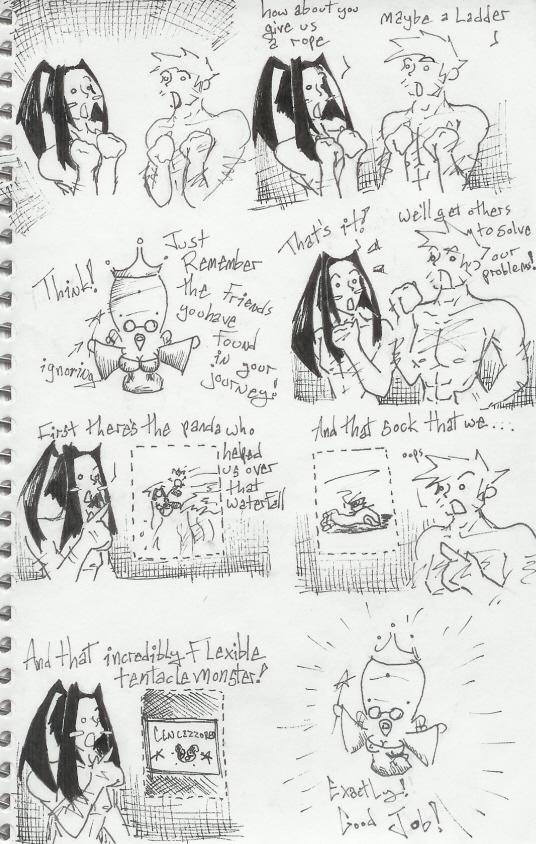 how about you
give us
a rope
maybe a Ladder
Think!
ignoring
Just
Remember
the Friends
you have
Found
in your
journey!
That's it!
we'll get others
to solve
our
problems!
First there's the panda who
helped
us over
that
waterfall
And that sock that we...
oops
And that incredibly Flexible
tentacle monster!
Exactly!
Good Job!